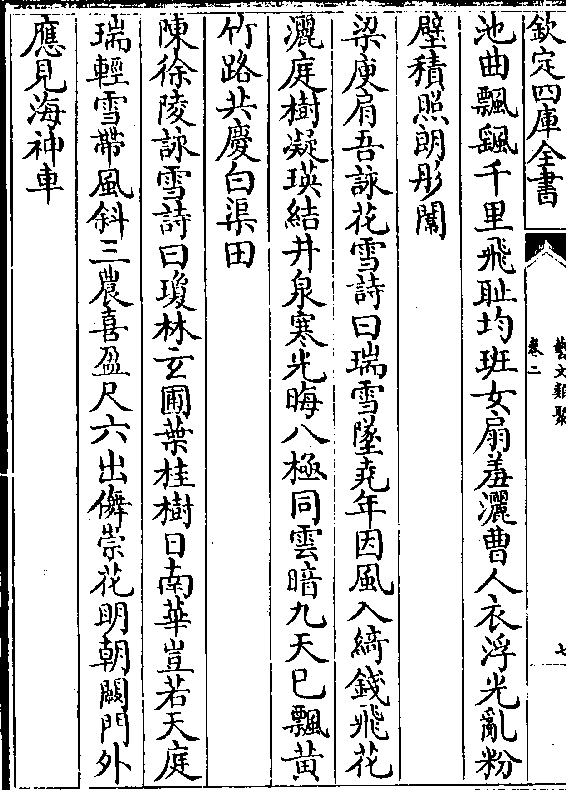 欽定四庫全書
藝文類聚
卷二
七
池曲飄颻千里飛耻均班女扇羞灑曹人衣浮光亂粉
壁積照朗彤闈
梁庾肩吾詠花雪詩曰瑞雪墜堯年因風入綺錢飛花
灑庭樹凝瑛結井泉寒光晦八極同雲暗九天已飄黄
竹路共慶白渠田
陳徐陵詠雪詩曰瓊林玄圃葉桂樹日南華豈若天庭
瑞輕雪帶風斜三農喜盈尺六出儛崇花明朝闕門外
應見海神車